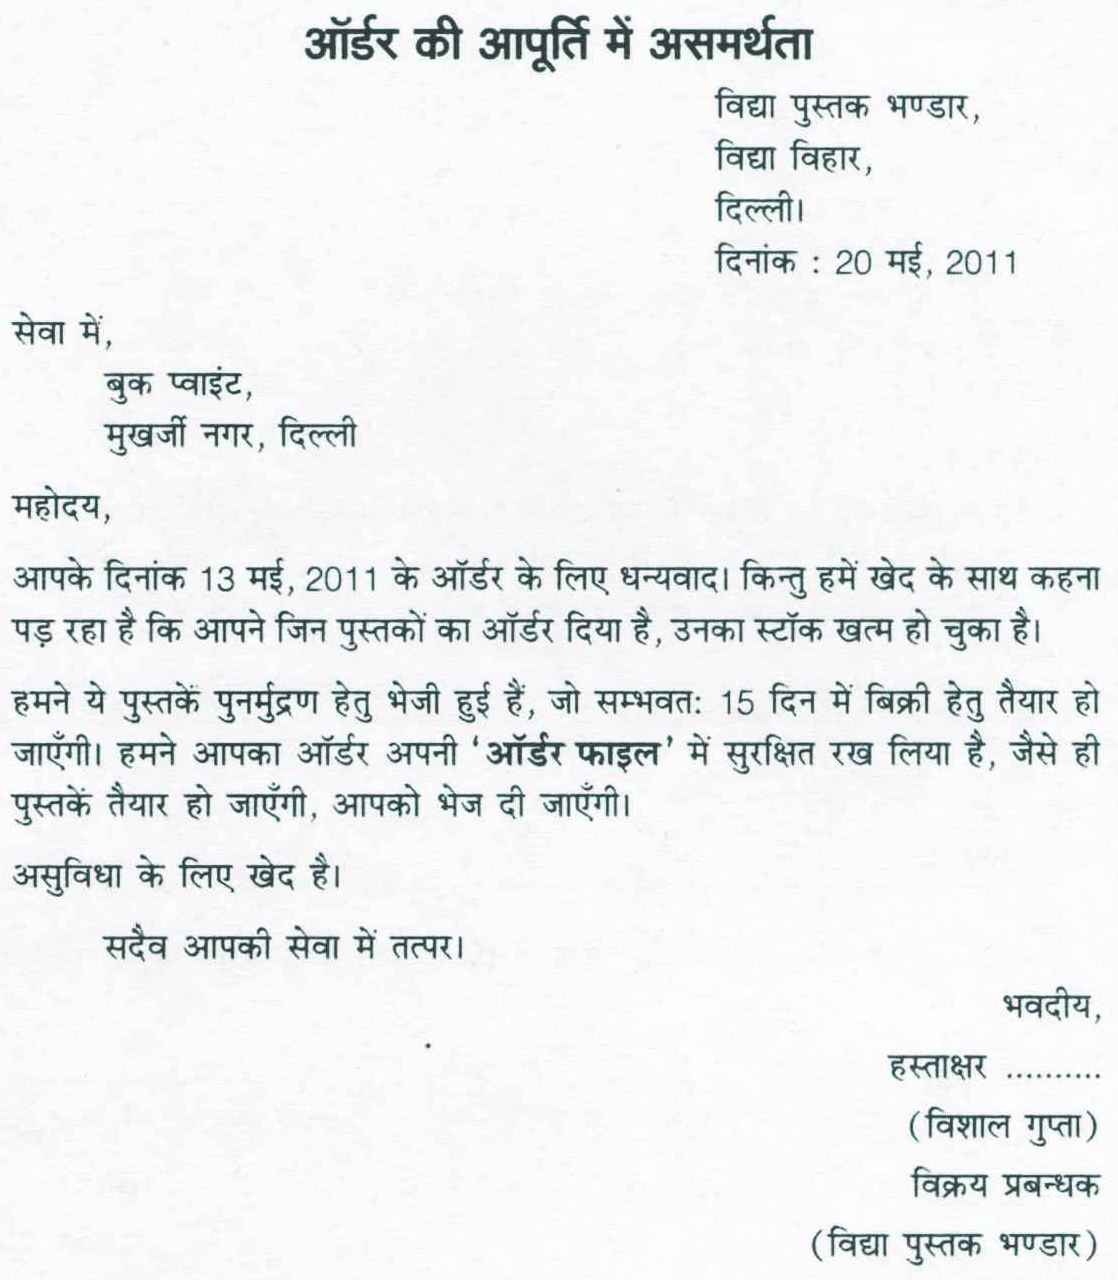 ऑर्डर की आपूर्ति में असमर्थता
विद्या पुस्तक भण्डार,
विद्या विहार,
दिल्ली।
दिनांक : 20 मई, 2011
सेवा में,
बुक प्वाइंट,
मुखर्जी नगर, दिल्ली
महोदय,
आपके दिनांक 13 मई, 2011 के ऑर्डर के लिए धन्यवाद। किन्तु हमें खेद के साथ कहना
पड़ रहा है कि आपने जिन पुस्तकों का ऑर्डर दिया है, उनका स्टॉक खत्म हो चुका है।
हमने ये पुस्तकें पुनर्मुद्रण हेतु भेजी हुई हैं, जो सम्भवत: 15 दिन में बिक्री हेतु तैयार हो
जाएँगी। हमने आपका ऑर्डर अपनी ‘ऑर्डर फाइल’ में सुरक्षित रख लिया है, जैसे ही
पुस्तकें तैयार हो जाएँगी, आपको भेज दी जाएँगी।
असुविधा के लिए खेद है।
सदैव आपकी सेवा में तत्पर।
भवदीय,
हस्ताक्षर ..........
(विशाल गुप्ता)
विक्रय प्रबन्धक
(विद्या पुस्तक भण्डार)